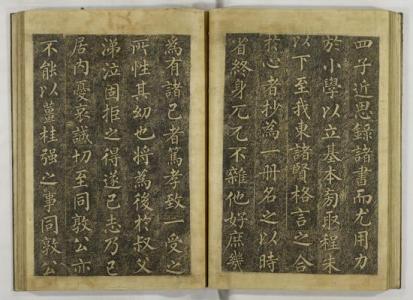 四子近思錄諸書而尤用力
於小學以立基本旁取程朱
以下至我東諸賢格言之合
於心者抄爲一冊名之以時
省終身兀兀不雜他好庶幾
爲有諸己者篤孝致一受之
所性其幼也將爲後於叔父
涕泣固拒之得遂己志乃已
居內憂哀誠切至同敦公亦
不能以薑桂强之事同敦公